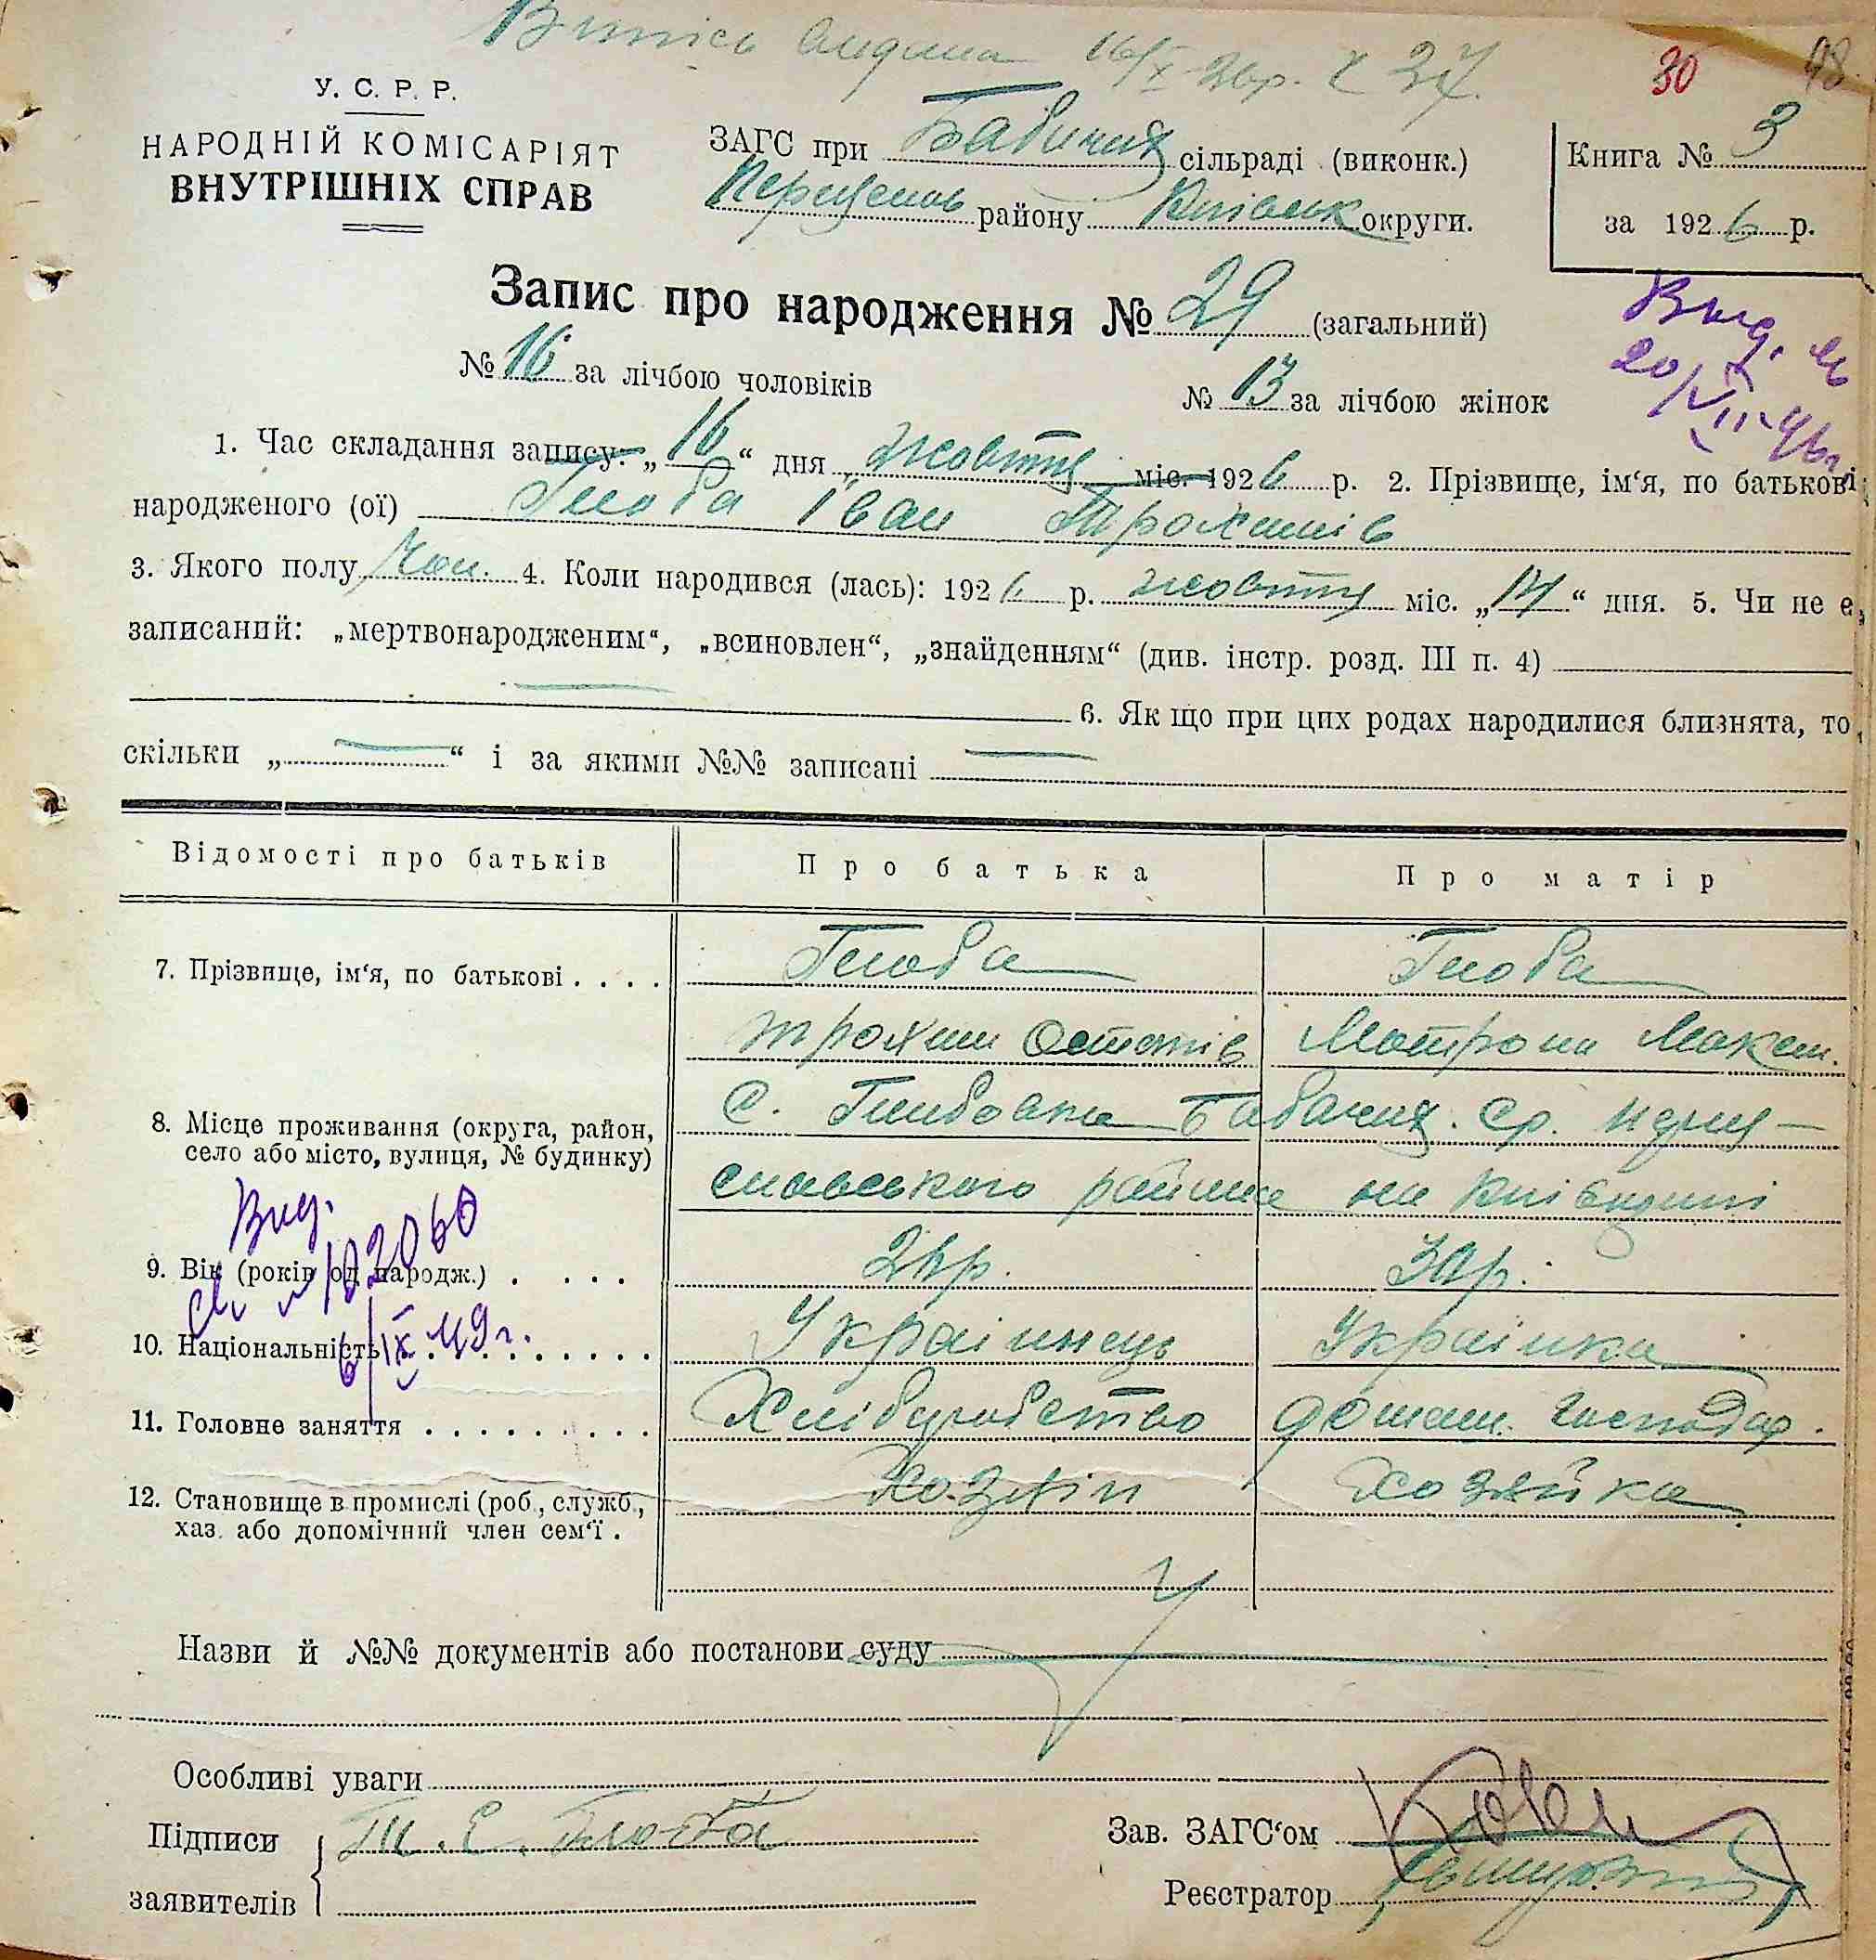 Випись видана 16/X 26р. № 27.
30
У. С. Р. Р.
НАРОДНІЙ КОМІСАРІЯТ
ВНУТРІШНІХ СПРАВ
ЗАГС при Бабичих сільраді (виконк.)
району округи.
Книга № 3
за 1926 р.
Запис про народження № 29 (загальний)
№ 16 за лічбою чоловіків
№ 13 за лічбою жінок
Вид.
20/VII-46г
1. Час складання запису: „16“ дня жовтня міс. 1926 р. 2. Прізвище, ім‘я, по батькові
народженого (ої) Глоба Іван Трохимів
3. Якого полу Чол. 4. Коли народився (лась): 1926 р. жовтня міс. „14“ дня. 5. Чи не є,
записаний: „мертвонародженим“, „всиновлен“, „знайденням“ (див. інстр. розд. III п. 4)
6. Як що при цих родах народилися близнята, то,
скільки „ “ і за якими №№ записані
Відомості про батьків
Про батька
Про матір
7. Прізвище, ім‘я, по батькові . . . .
Глоба
Глоба
Трохим Остапів
Мотрона Максим.
8. Місце проживання (округа, район,
село або місто, вулиця, № будинку)
с. Бабачих. Ср.
славського району на Київщині
Вид.
9. Вік (років од народж.) . . . .
26р.
30р.
10. Національність . . . . . . . .
6/IX 49г.
Українець
Українка
11. Головне заняття . . . . . . . . .
Хліборобство
домаш. господар.
12. Становище в промислі (роб., служб.,
хаз. або допомічний член сем‘ї .
Хозяїн
Хозяйка
Назви й №№ документів або постанови суду
Особливі уваги
Підписи
заявителів
Т. Є. Глоба
Зав. ЗАГС‘ом
Реєстратор